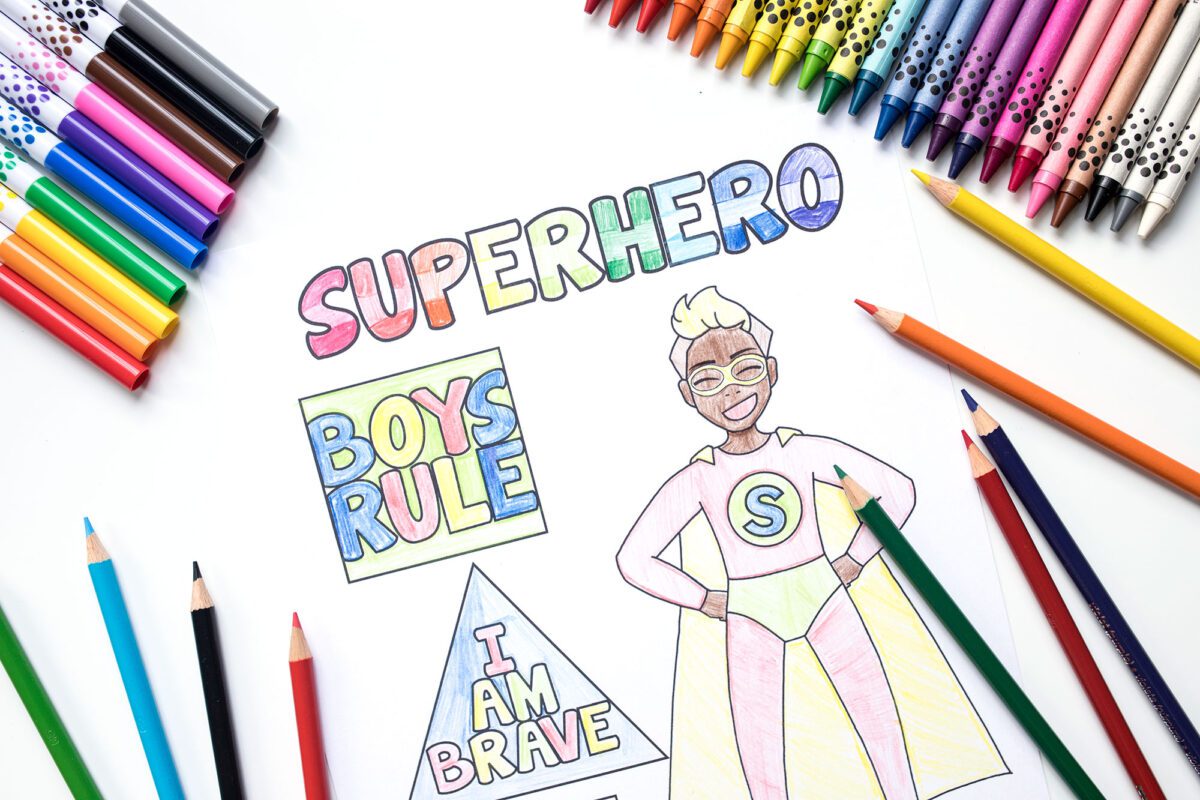 SUPERHERO
BOYS
RULE
S
I
AM
BRAVE